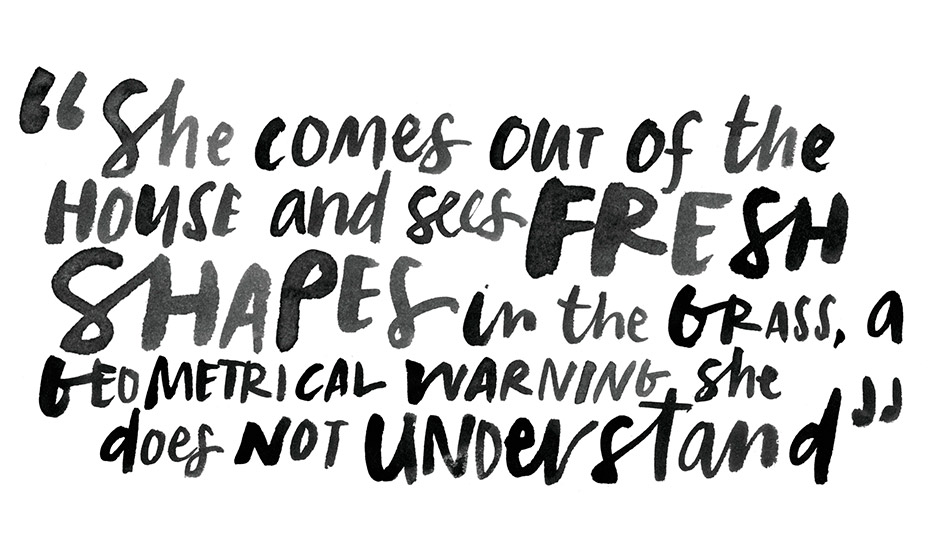 “She comes OUT of the
HOUSE and sees FRESH
SHAPES in the GRASS, a
GEOMETRICAL WARNING she
does NOT UNDerstand”